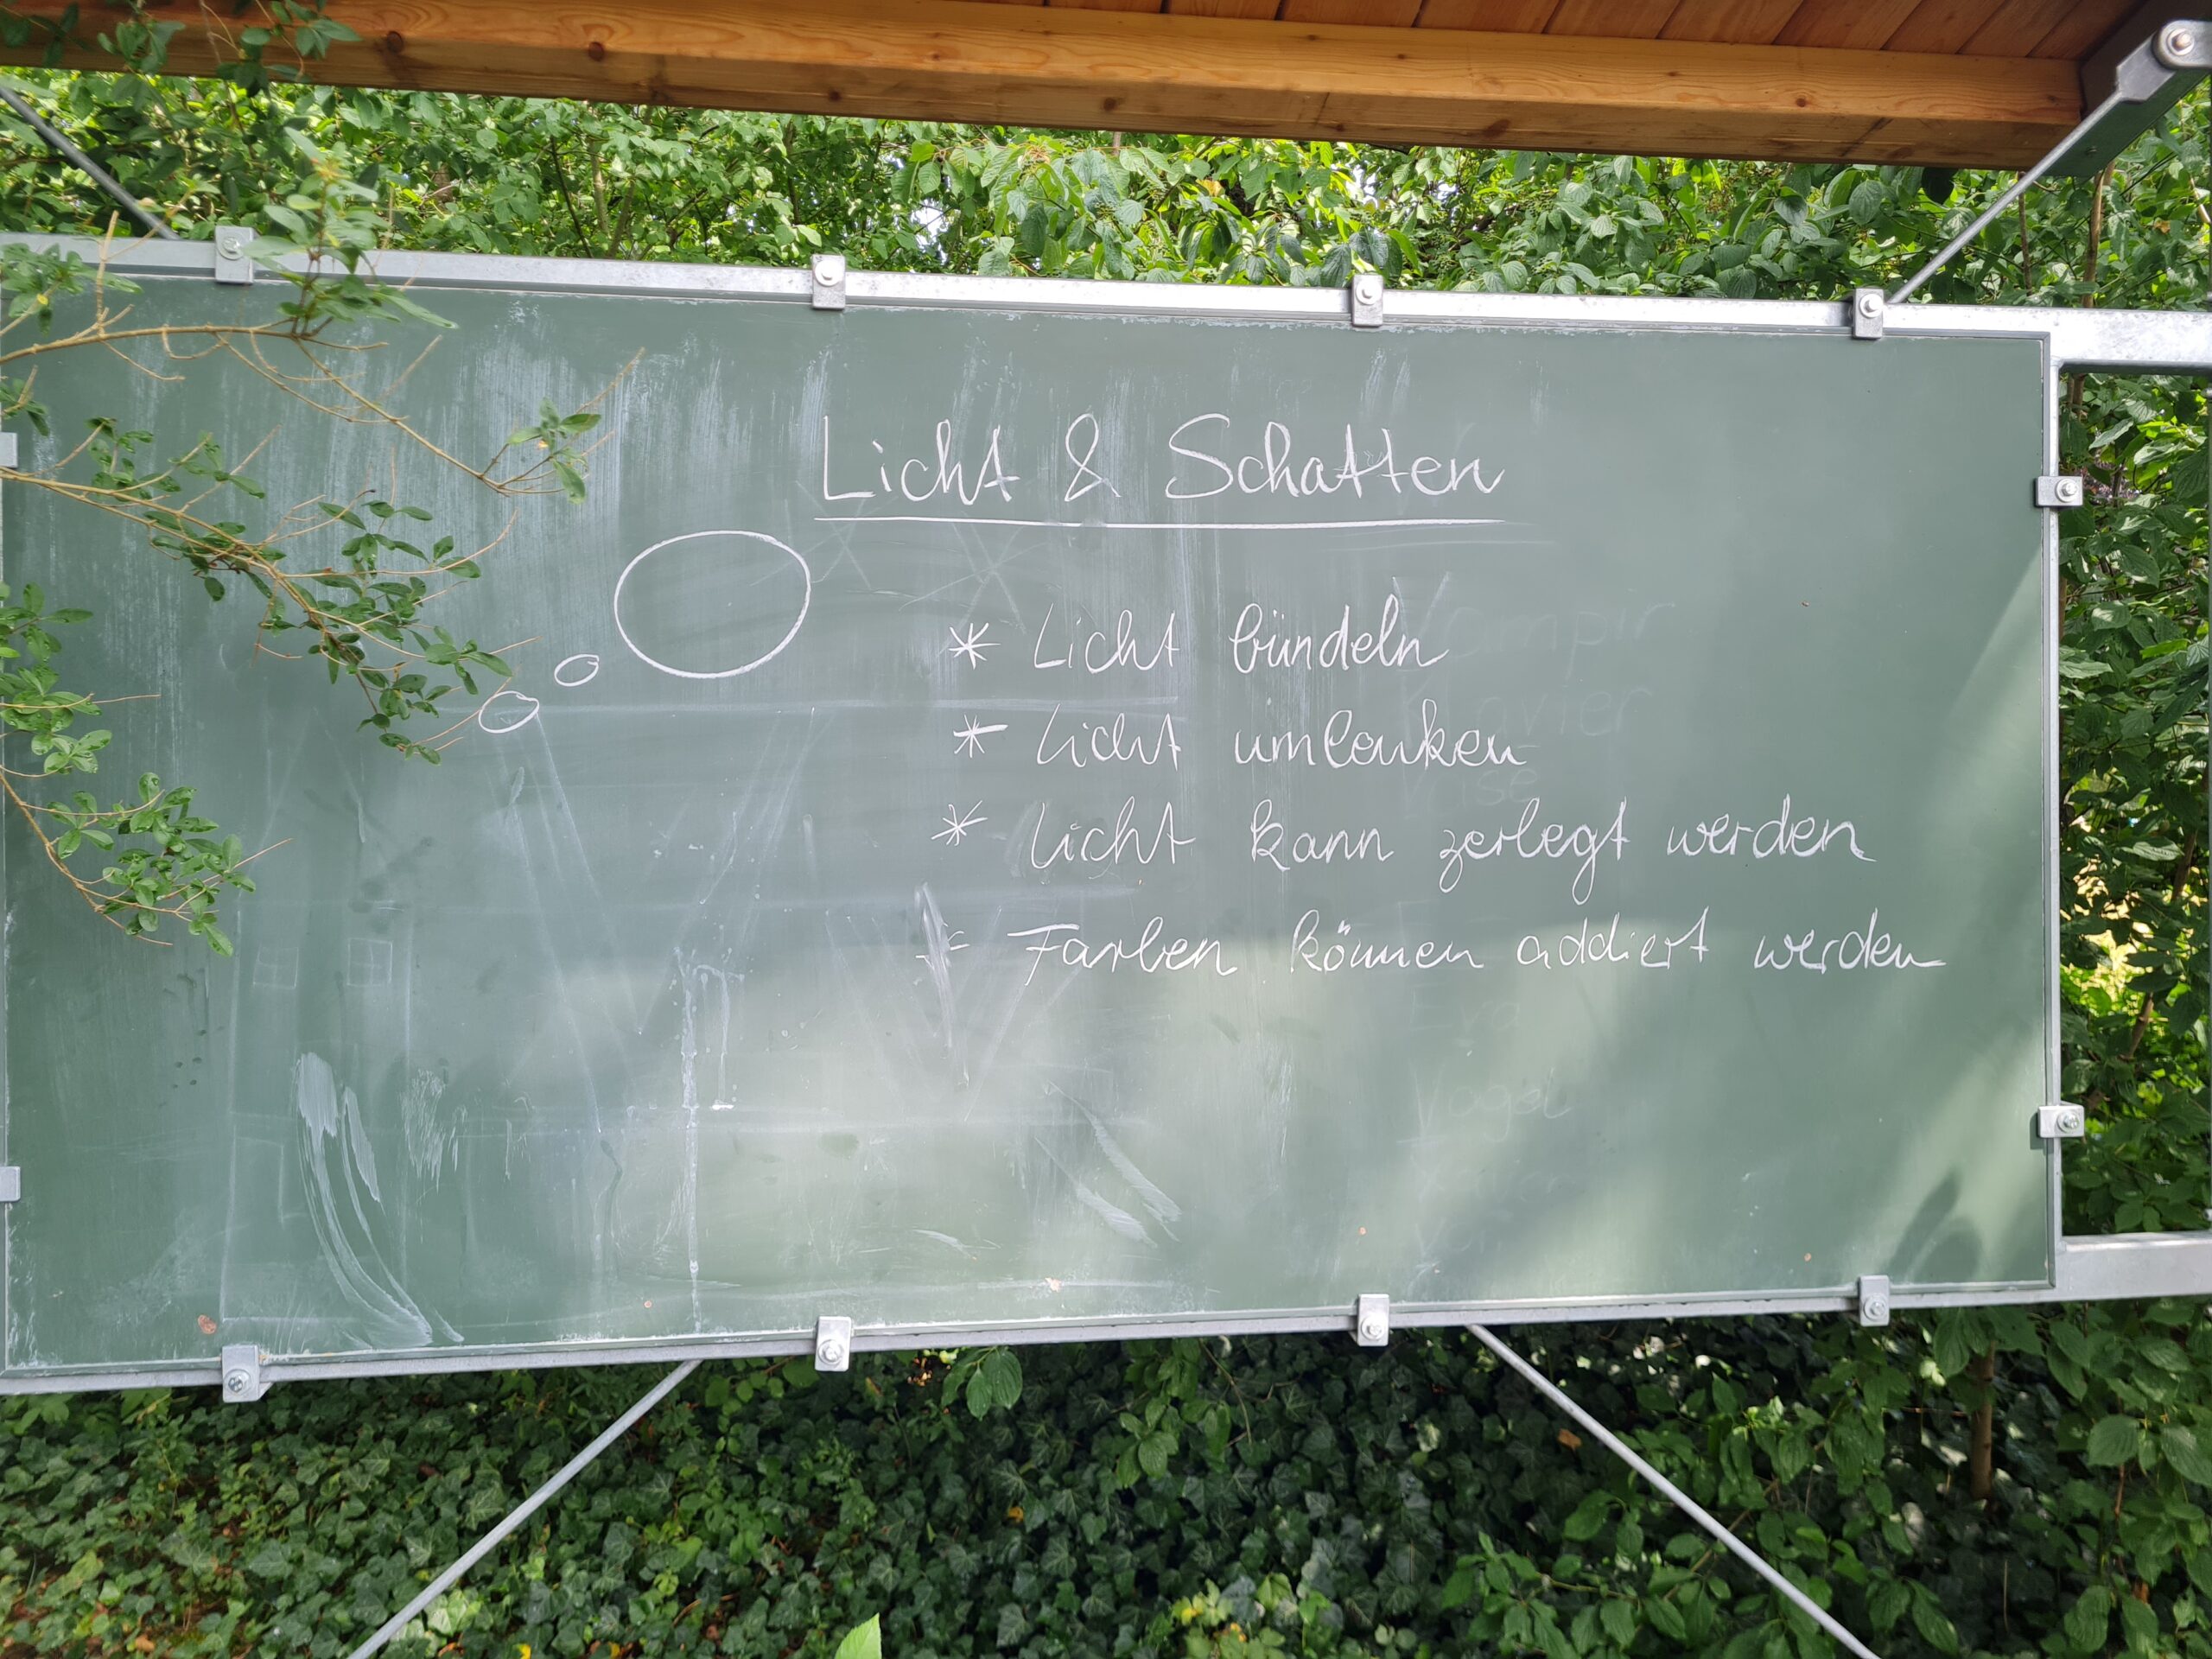 Licht & Schatten
* Licht bündeln
* Licht umlenken
* Licht kann zerlegt werden
* Farben können addiert werden
Vampir
Vogel